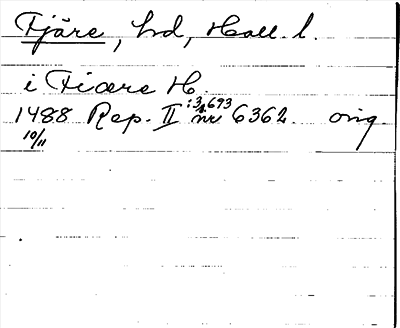 Fjäre, hd, Hall. l.
i Fiære H.
1488 Rep. II :3,693 nr 6362. orig.
10/11